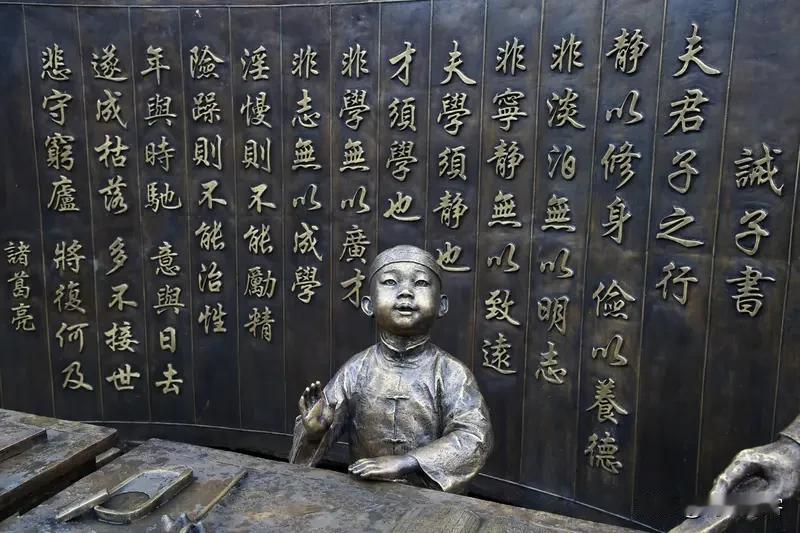 誡子書
夫君子之行
靜以修身儉以養德
非淡泊無以明志
非寧靜無以致遠
夫學須靜也
才須學也
非學無以廣才
非志無以成學
淫慢則不能勵精
險躁則不能治性
年與時馳意與日去
遂成枯落多不接世
悲守窮廬將復何及
諸葛亮